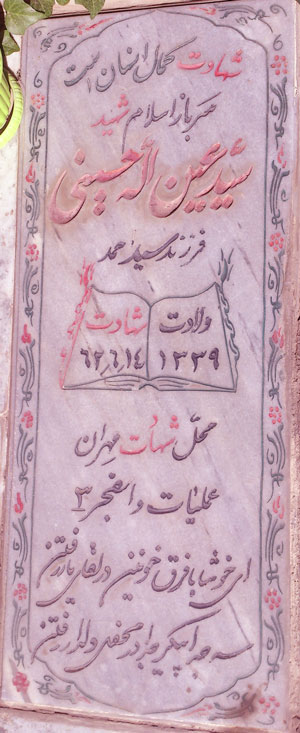 شهادت کمال انسان است
سرباز اسلام شهید
سید معین اله حسینی
فرزند سید محمد
ولادت شهادت
۱۳۳۹ ۶۲٫۶٫۱۴
محل شهادت مهران
عملیات والفجر ۳
ای خوشا با فرق خونین در لقای یار رفتن
سر جدا پیکر جدا در محفل دلدار رفتن